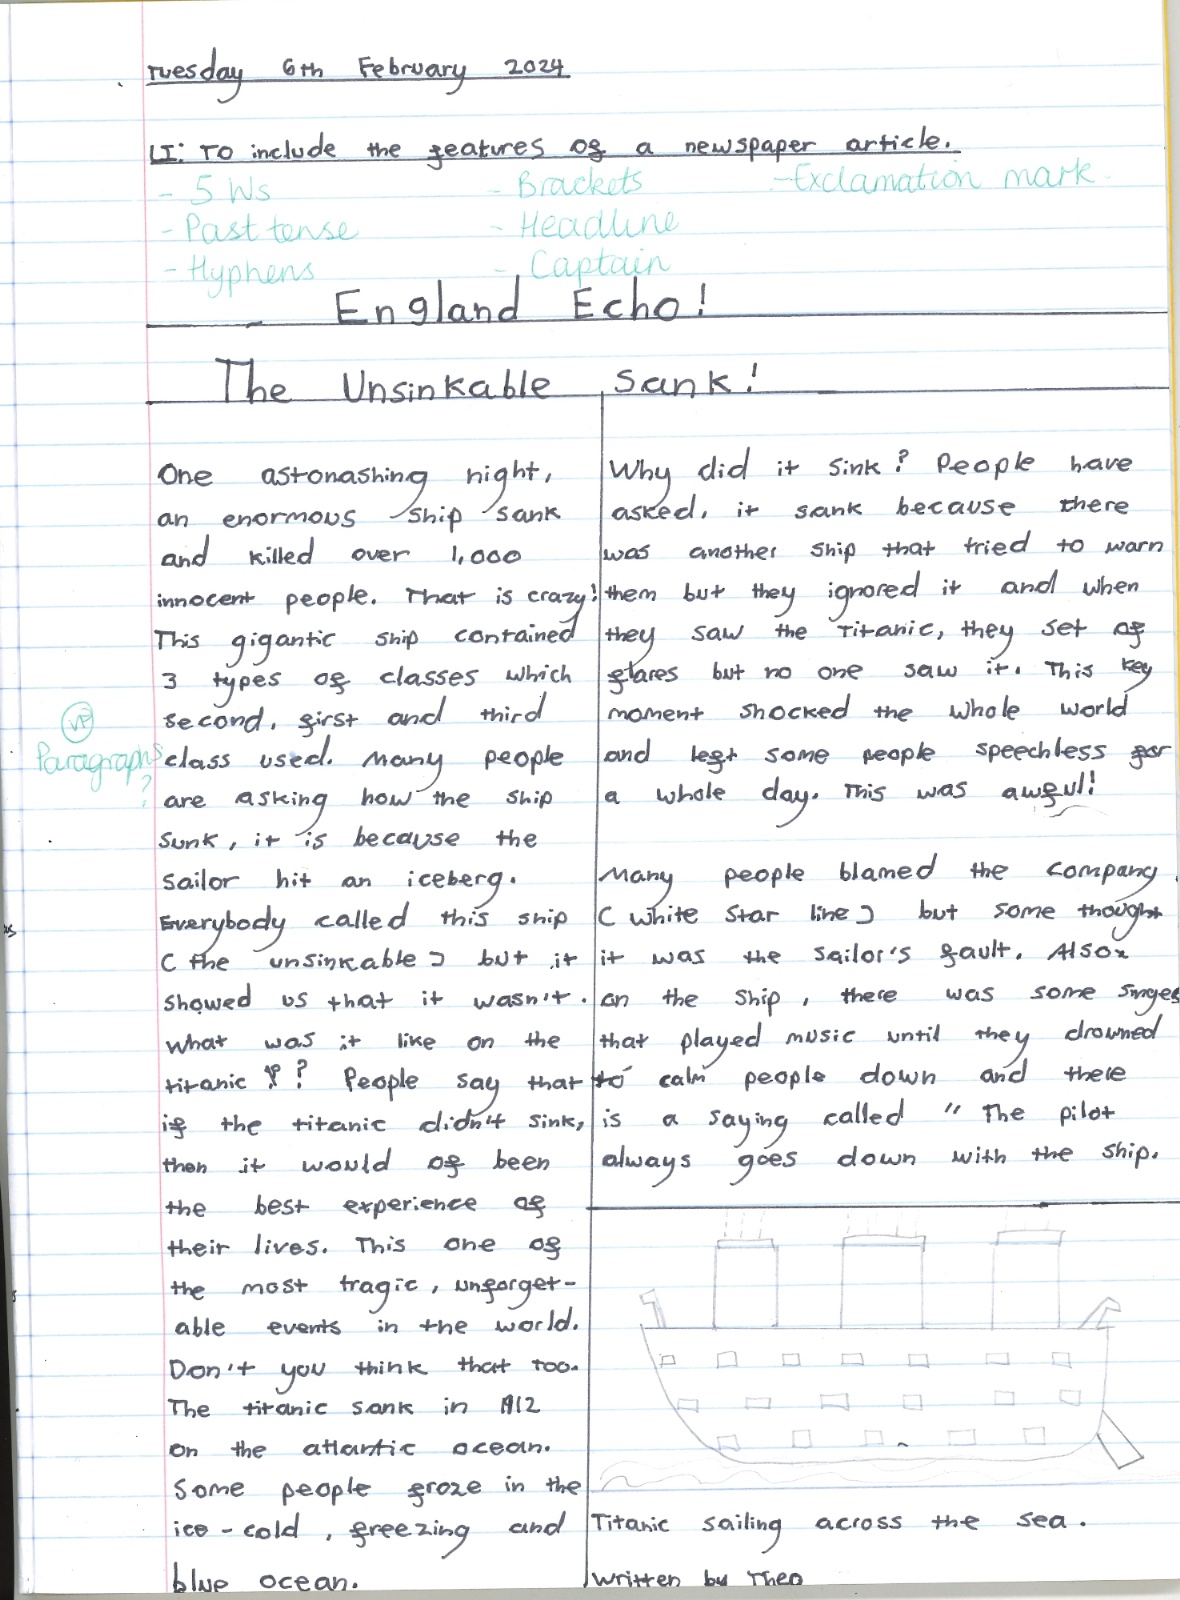 Tuesday 6th February 2024
LI: To include the features of a newspaper article.
- 5 Ws
- Past tense
- Hyphens
- Brackets
- Headline
- Captain
- Exclamation mark
England Echo!
The Unsinkable Sank!
One astonashing night,
an enormous ship sank
and killed over 1,000
innocent people. That is crazy!
This gigantic ship contained
3 types of classes which
second, first and third
class used. Many people
are asking how the ship
sunk, it is because the
sailor hit an iceberg.
Everybody called this ship
(the unsinkable) but it
showed us that it wasn't.
What was it like on the
titanic ? People say that
if the titanic didn't sink,
then it would of been
the best experience of
their lives. This one of
the most tragic, unforget-
able events in the world.
Don't you think that too.
The titanic sank in 1912
on the atlantic ocean.
Some people froze in the
ice-cold, freezing and
blue ocean.
VP
Paragraphs
?
Why did it sink? People have
asked, it sank because there
was another ship that tried to warn
them but they ignored it and when
they saw the Titanic, they set of
flares but no one saw it. This key
moment shocked the whole world
and left some people speechless for
a whole day. This was awful!
Many people blamed the company
(White Star line) but some thought
it was the sailor's fault. Also
on the ship, there was some singes
that played music until they drowned
to calm people down and there
is a saying called " The pilot
always goes down with the ship.
Titanic sailing across the sea.
Written by Theo